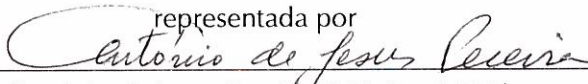 representada por
António de Jesus Pereira